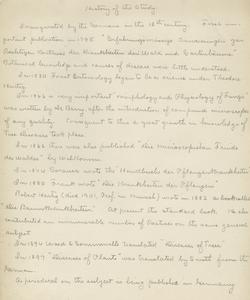 History of the Study.
Inaugurated by the Germans in the 18th century. First im-
portant publication in 1795 "Erfahrungsmässige Anweisung zur
Richtigen Kentniss der Krankheiten der Wald und Gartenbäume"
Botanical knowledge and causes of disease were little understood.
In 1833 Forest Entomology began to be a science under Theodore
Hartig.
In 1866 a very important morphology and Physiology of Fungi
was written by de Bary after the introduction of compound microscopes
of any quality. Consequent to this a great growth in knowledge of
Tree diseases took place.
In 1866 there was also published "die Microscopischen Feinde
des Waldes" by Willkomm.
In 1874 Sorauer wrote the "Handbuch der Pflanzenkrankheiten
In 1880 Frank wrote "die Krankheiten der Pflanzen"
Robert Hartig (died 1901, Prof. in Munich) wrote in 1882
"Baumkrankheiten" At present the standard book. He also
contributed an innumerable number of treatises on the same general
subject
In 1894 Ward & Somerville translated "Diseases of Trees"
In 1897 "Diseases of Plants" was translated by Smith from the
German.
A periodical on the subject is being published in Germany